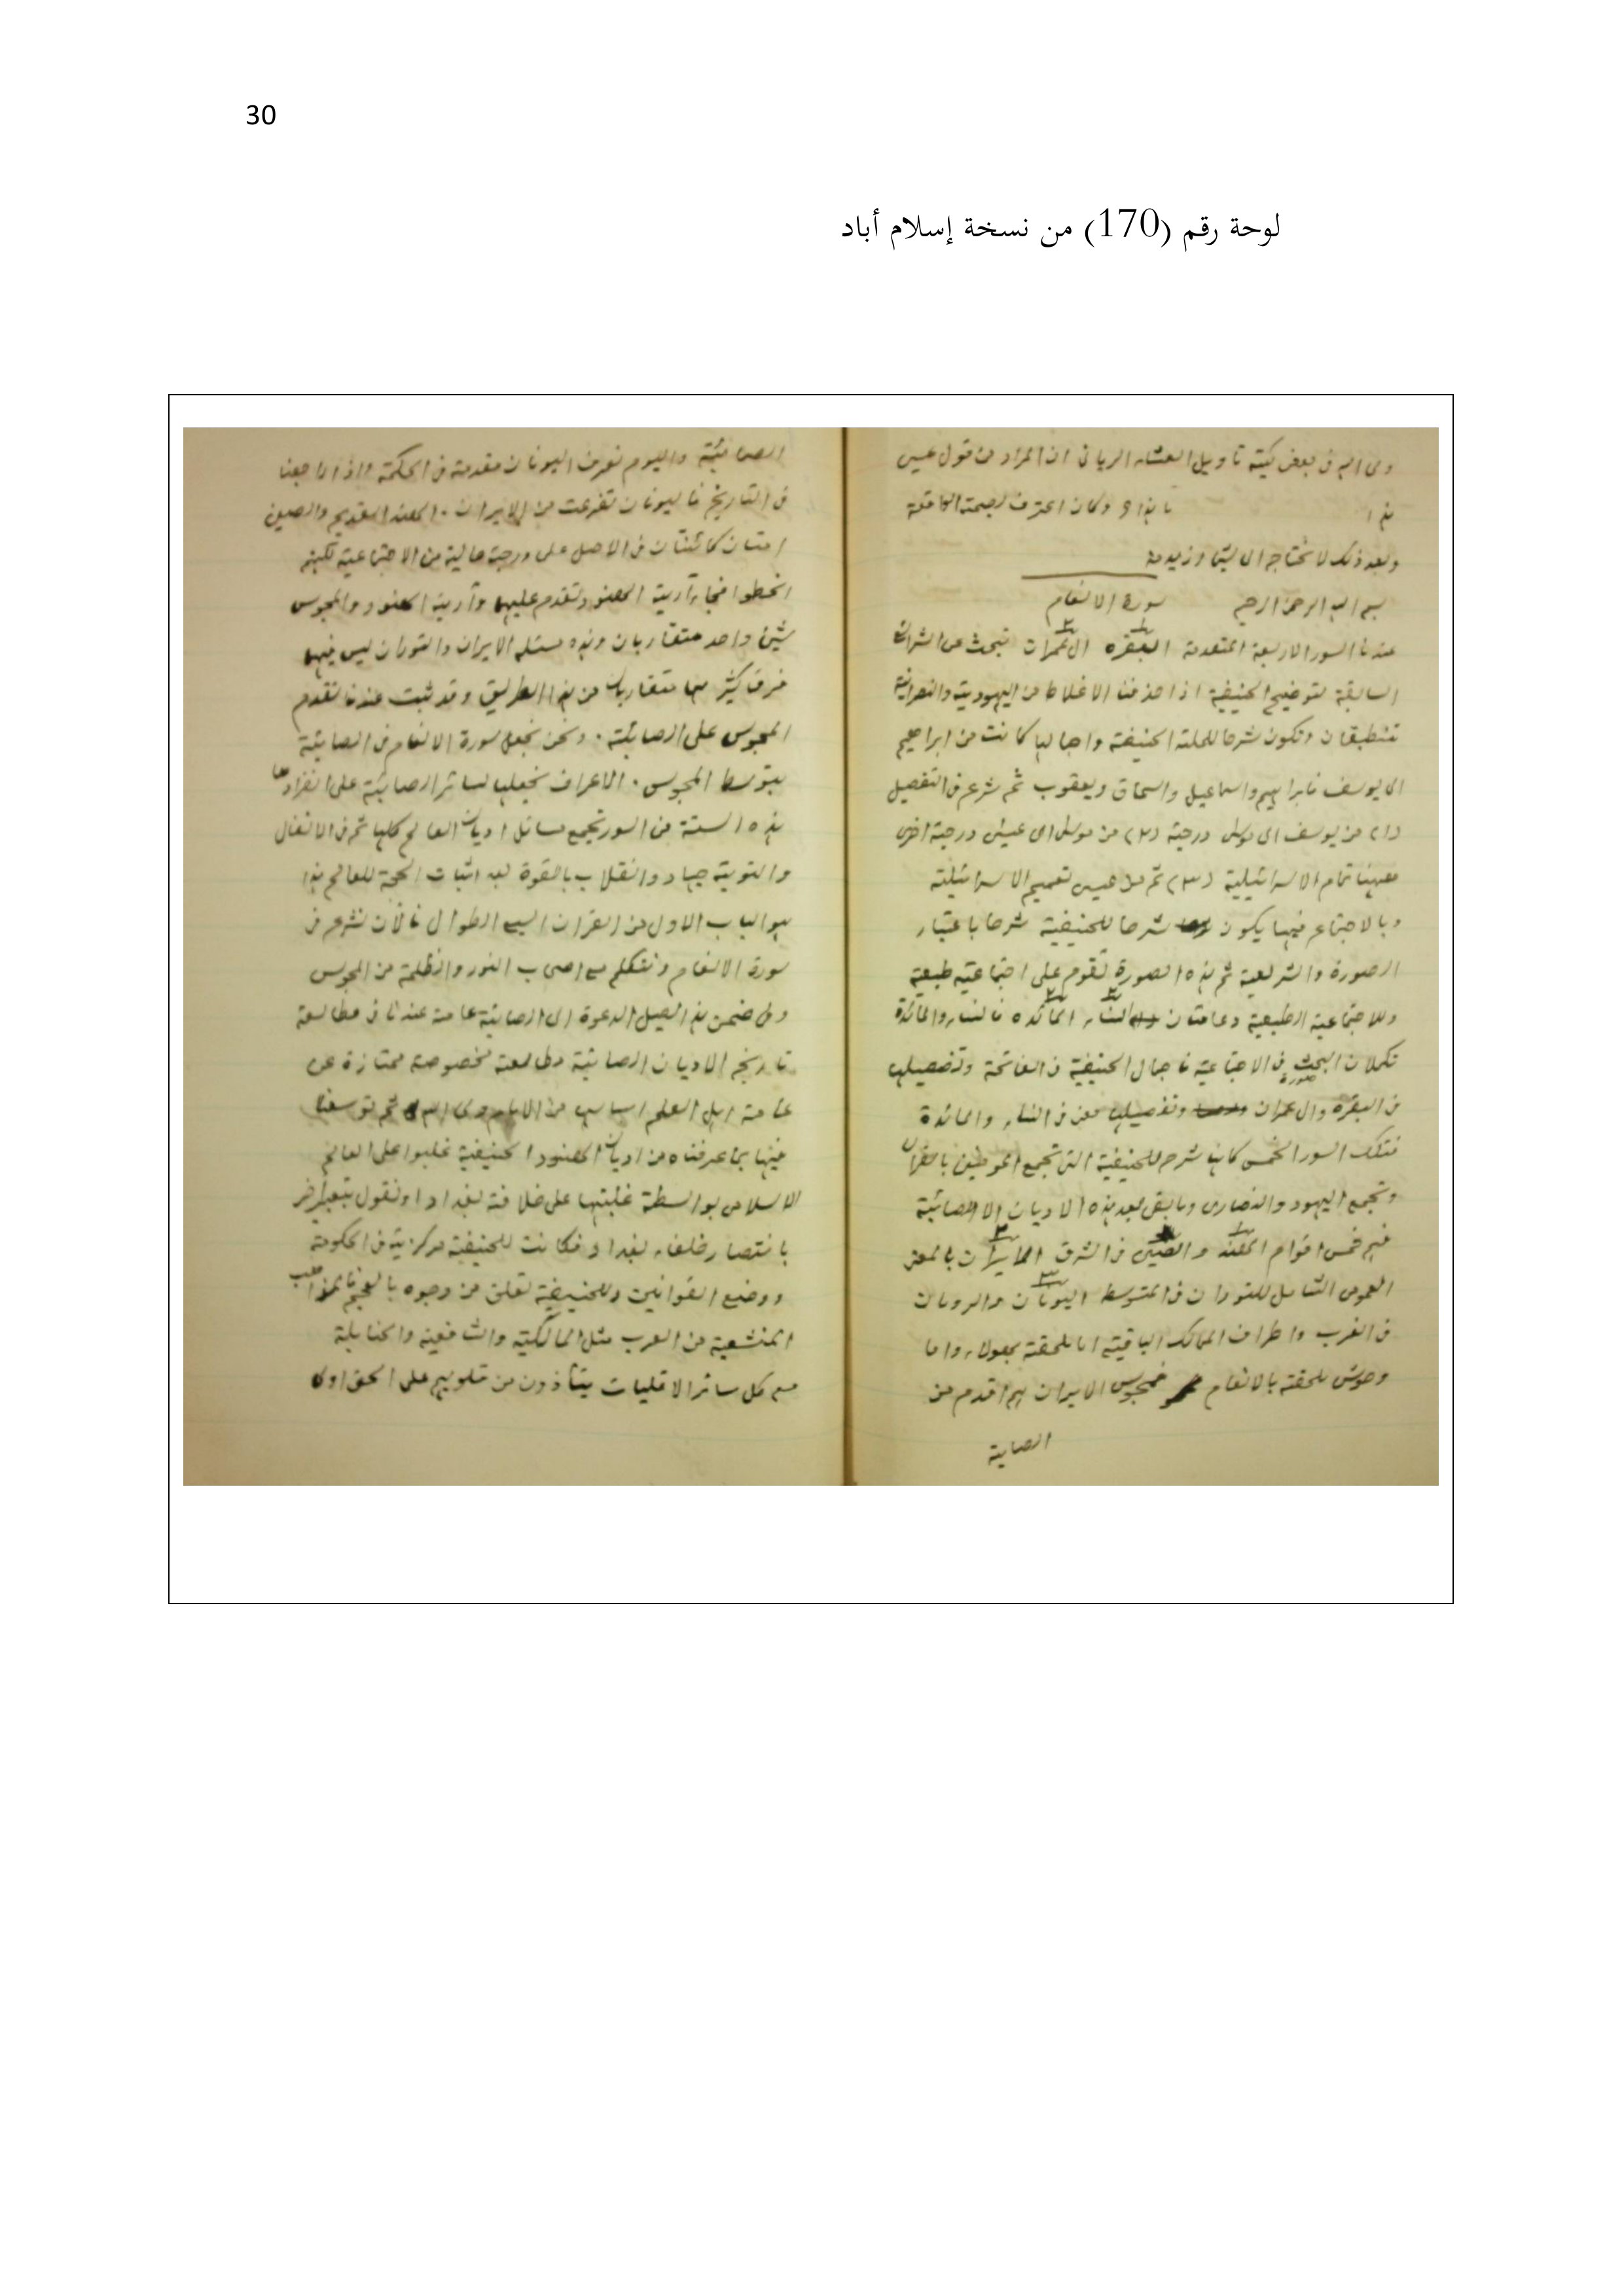 30
لوحة رقم (170) من نسخة إسلام أباد
ولى الله فى بعض كتبه تاويل العشاء الربانى ان المراد من قول عيسى
هذا وكان اعترف لصحة
وبعد ذلك لا نحتاج الى
بسم الله الرحمن الرحيم سورة الانعام
عندنا السور الاربعة المتقدمة البقره ال عمران تبحث عن الشرائع
السابقة لتوضيح الحنيفية اذا حذفنا الاغلاط من اليهودية والنصرانية
تنطبقان وتكون شرحا للملة الحنيفة واجمالها كانت من ابراهيم
الى يوسف فابراهيم واسماعيل واسحاق ويعقوب ثم شرع فى التفصيل
(۱) من يوسف الى موسى درجة (۲) من موسى الى عيسى درجة اخرى
تمام الاسرائيلية (۳) ثم من عيسى تعميم الاسرائيلية
وبالاجتماع فيها يكون شرحا للحنيفية شرحا باعتبار
الصورة والشريعة ثم هذه الصورة تقوم على اجتماعية طبعية
وللاجتماعية الطبيعية دعامتان النساء المائده فالنساء والمائدة
تكملان البحث فى الاجتماعية فاجمال الحنيفية فى الفاتحة وتفصيلها
فى البقره وال عمران صورة وتفصيلها معنى فى النساء والمائدة
فتلك السور الخمس كانها شرح للحنيفية التى تجمع
وتجمع اليهود والنصارى وما بقى بعد هذه الاديان الا الصائبية
فهم خمس اقوام الهند والصين فى الشرق الايران بالمعنى
العمومى الشامل للتوران فى المتوسط اليونان والرومان
فى الغرب واطراف الممالك الباقية اما ملحقة بهولاء واما
وحوش ملحقة بالانعام فمجوس الايران هم اقدم من
الصابية
الصائبة واليوم نعرف اليونان مقدمة فى الحكمة واذا راجعنا
فى التاريخ فاليونان تفرعت من الايران. الهند القديم والصين
امتان كانتا فى الاصل على درجة عالية من الاجتماعية لكنهم
انحطوا فجاء آرية الهنود وتقدم عليهم وآرية الهنود والمجوس
شئ واحد متقاربان وهذه مسئلة الايران والتوران ليس فيهما
فرق كثير متقاربان من هذا الطريق وقد ثبت عندنا تقدم
المجوس على الصائبة. ونحن نجعل سورة الانعام فى الصائبة
بتوسط المجوس. الاعراف نجعلها لسائر الصائبة على انفرادها
هذه الستة من السور تجمع مسائل اديان العالم كلها ثم فى الانفال
والتوبة جهاد وانقلاب بالقوة بعد اثبات الحجة للعالم هذا
هو الباب الاول من القران السبع الطوال فالآن نشرع فى
سورة الانعام ونتكلم مع اصحاب النور والظلمة من المجوس
وفى ضمن هذا الدعوة الى الصائبة عامة عندنا فى مطالعة
تاريخ الاديان الصائبة مطالعة مخصوصة ممتازة عن
عامة اهل العلم اساسها من الامام ولى الله ثم توسعنا
فيها بما عرفناه من اديان الهنود الحنيفية غلبوا على العالم
الاسلامى بواسطة غلبتها على خلافة بغداد او نقول بتعبير آخر
بانتصار خلفاء بغداد فكانت للحنيفية مركزية فى الحكومة
ووضع القوانين وللحنيفية تعلق من وجوه بالعجم
المنشعبة من العرب مثل المالكية والشافعية والحنابلة
مع كل سائر الاقليات يتأذون من قلوبهم على